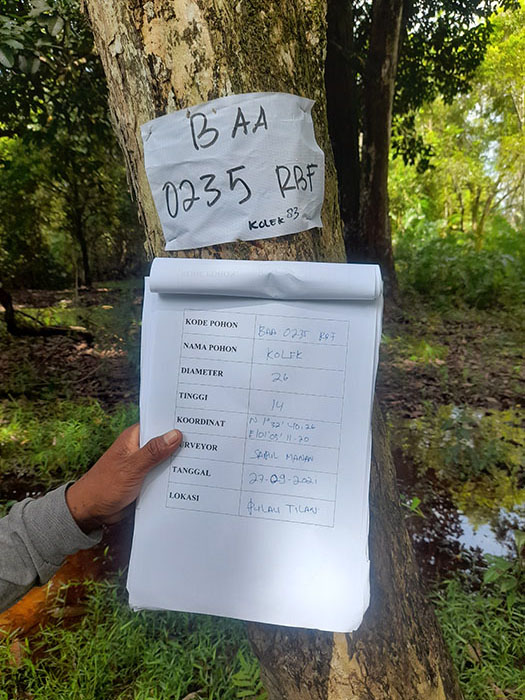 BAA
0235 RBF
KOLEK 83
KODE POHON BAA 0235 RBF
NAMA POHON KOLEK
DIAMETER 26
TINGGI 14
KOORDINAT N 1°32'40.26
E101°09'11.20
SURVEYOR MANAN
TANGGAL 27-09-2021
LOKASI PULAU TILAN